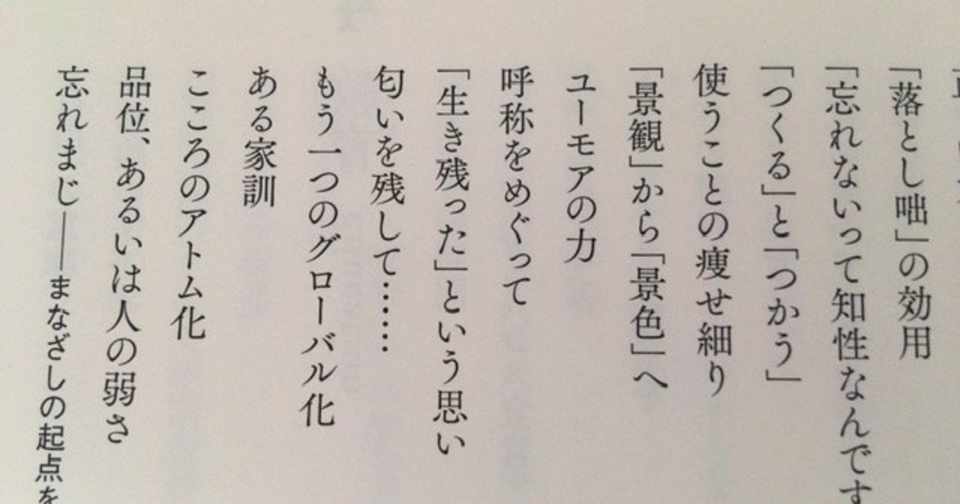 「落とし咄」の効用
「忘れないって知性なんです
「つくる」と「つかう」
使うことの痩せ細り
「景観」から「景色」へ
ユーモアの力
呼称をめぐって
「生き残った」という思い
匂いを残して……
もう一つのグローバル化
ある家訓
こころのアトム化
品位、あるいは人の弱さ
忘れまじ——まなざしの起点を